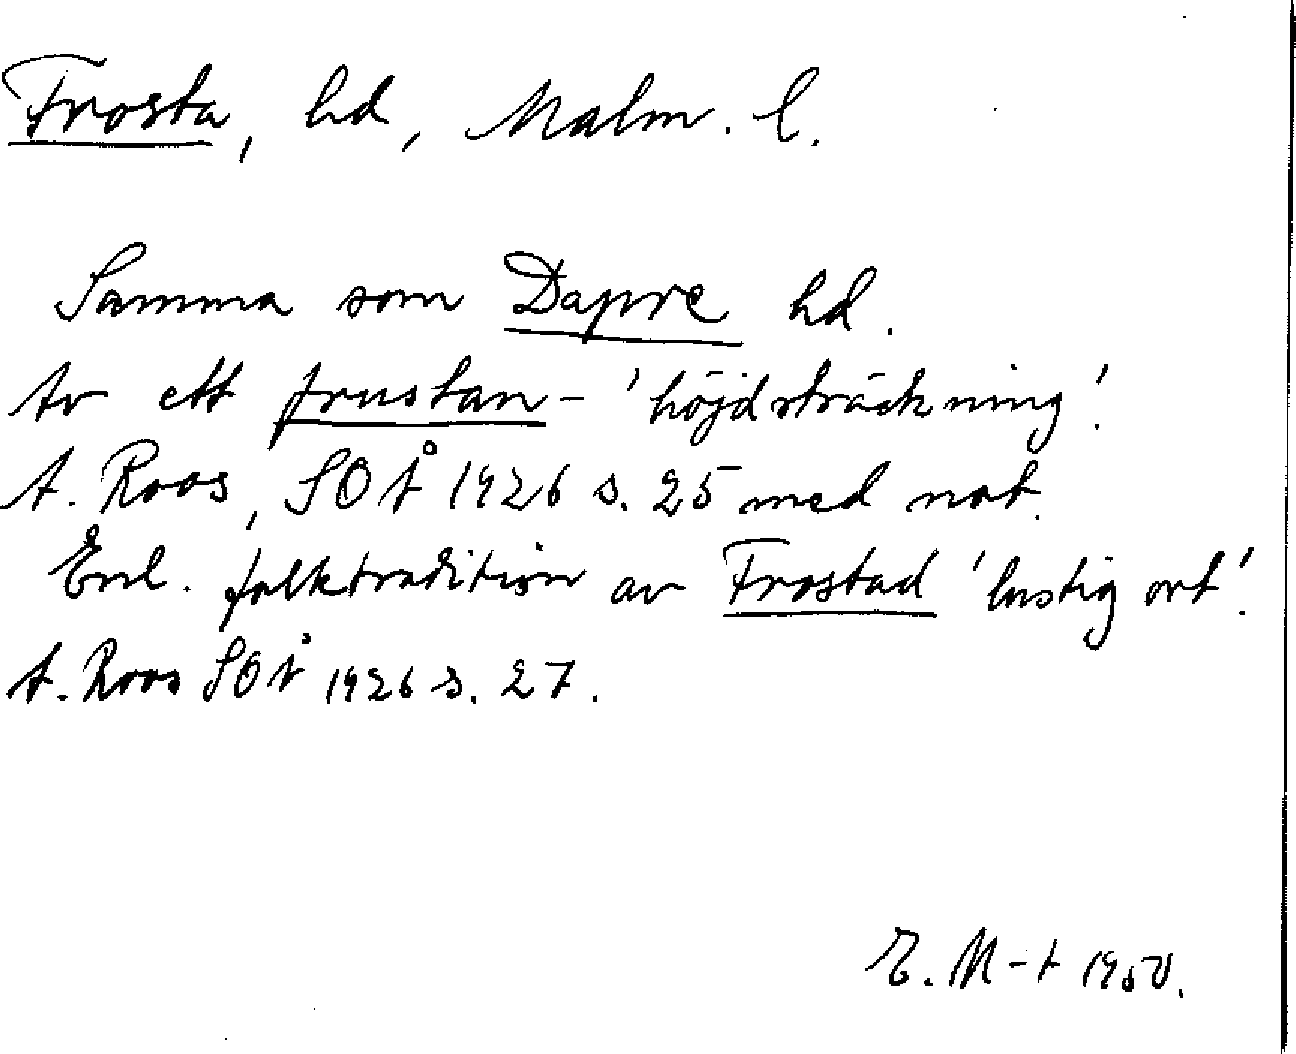 Frosta, hd, Malm. l.
Samma som Dapre hd.
Av ett frustan- 'höjdsträckning'.
A. Roos, SOÅ 1926 s. 25 med not.
Enl. folktradition av Frostad 'lustig ort'.
A. Roos SOÅ 1926 s. 27.
E. M-t 1950.